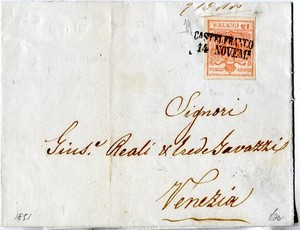 CASTELFRANCO
14 NOVEM.e
Signori
Gius.e Reali & Erede Gavazzi
Venezia
1851